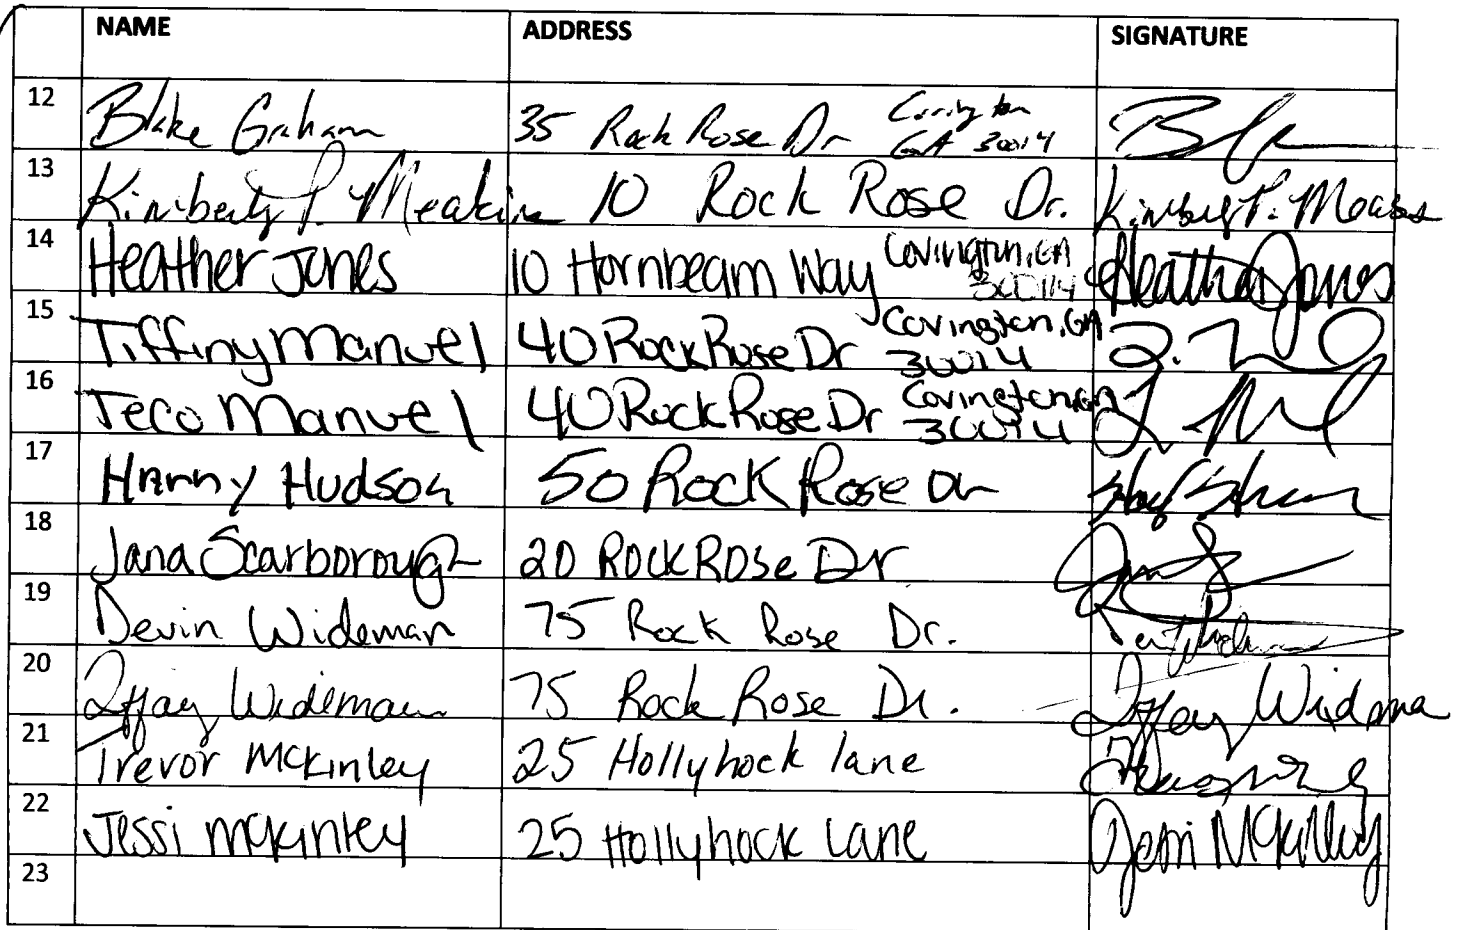 NAME ADDRESS SIGNATURE
12 Blake Graham 35 Rock Rose Dr Covington GA 30014
13 Kimberly P. Meakin 10 Rock Rose Dr. Kimberly P. Meakin
14 Heather Jones 10 Hornbeam Way Covington, GA 30014 Heather Jones
15 Tiffiny Manuel 40 Rock Rose Dr Covington, GA 30014
16 Teco Manuel 40 Rock Rose Dr Covington, GA 30014
17 Harry Hudson 50 Rock Rose Dr
18 Jana Scarborough 20 Rock Rose Dr
19 Devin Wideman 75 Rock Rose Dr.
20 Wideman 75 Rock Rose Dr.
21 Trevor McKinley 25 Hollyhock lane
22 Jessi McKinley 25 Hollyhock Lane Jessi McKinley
23